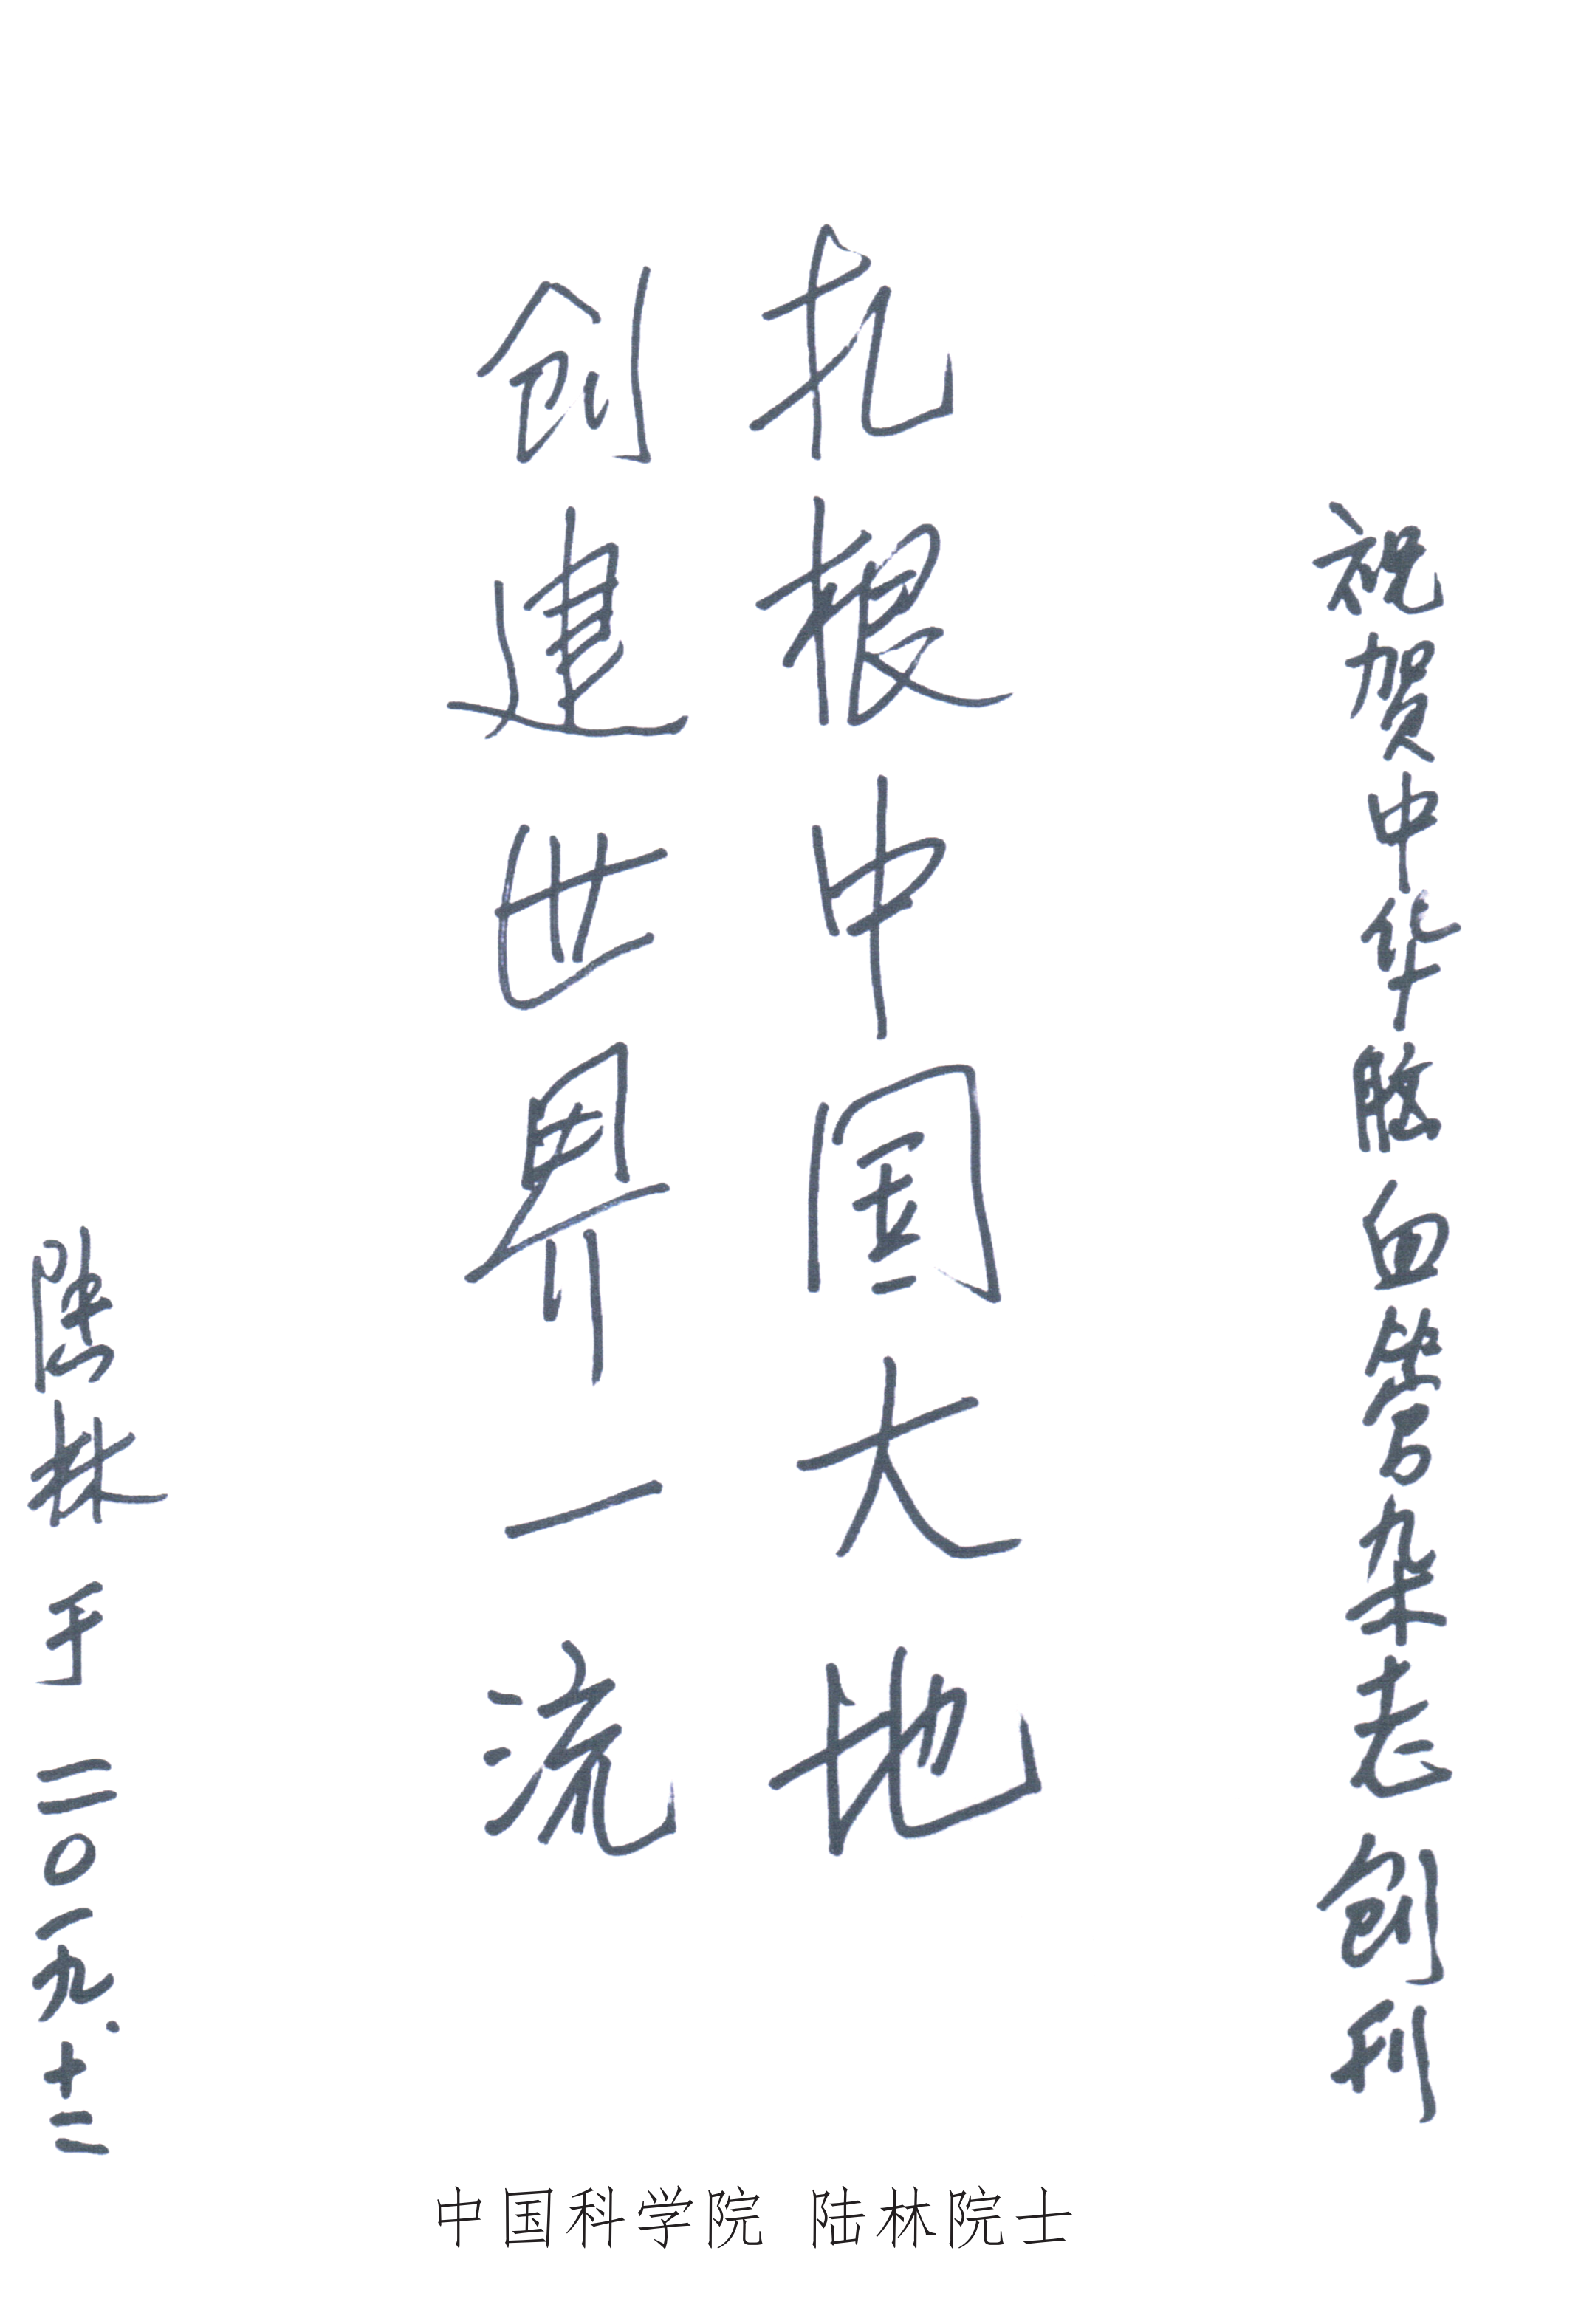 祝贺中华脑血管杂志创刊
扎根中国大地
创建世界一流
陆林于 二〇一九.十二
中国科学院 陆林院士